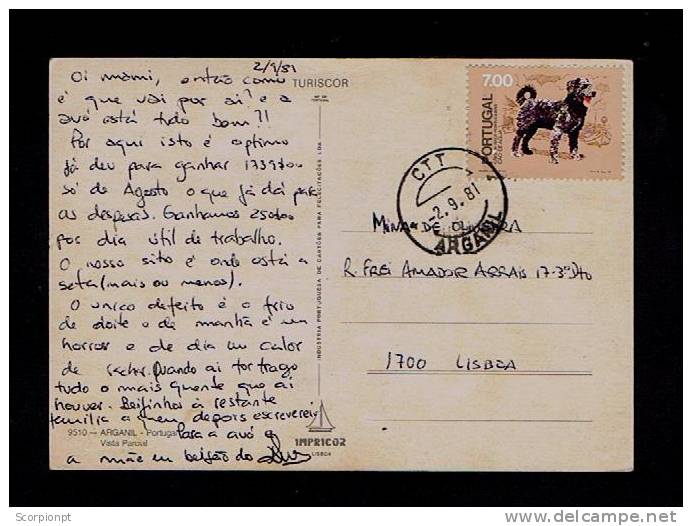 2/9/81
Oi mami, então como
é que vai por aí? e a
avó está tudo bom?!
Por aqui isto é optimo
já deu para ganhar
só de Agosto o que já dá para
as despesas. Ganhamos
por dia útil de trabalho.
O nosso sito é onde está a
seta (mais ou menos).
O unico defeito é o frio
de doite e de manhã é um
horror e de dia um calor
de rachar. Quando ai for trago
tudo o mais quente que ai
houver. Beijinhos à restante
familia a quem depois escreverei
Para a avó e
a mãe um beijão do
TURISCOR
INDÚSTRIA PORTUGUESA DE CARTÕES PARA FELICITAÇÕES LDA.
9510 — ARGANIL - Portugal
Vista Parcial
IMPRICOR
LISBOA
7.00
PORTUGAL
CÃO DE ÁGUA
CTT
-2.9.81
ARGANIL
DE OLIVEIRA
R. FREI AMADOR ARRAIS 17-3ºDto
1700 LISBOA
Scorpionpt
www.delcampe.net